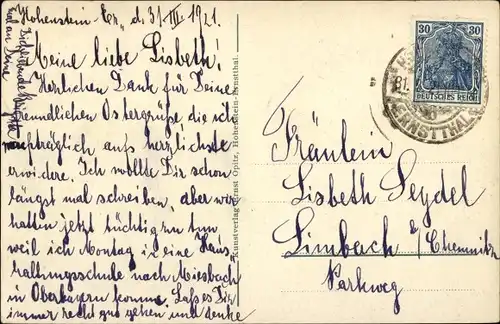 Hohenstein-Er., d. 31.III.1921.
Meine liebe Lisbeth!
Herzlichen Dank für Deine
freundlichen Ostergrüße die ich
nachträglich aufs herzlichste
erwidere. Ich wollte Dir schon
längst mal schreiben, aber wir
hatten jetzt tüchtig zu tun
weil ich Montag i. eine Haus
haltungsschule nach Miesbach
in Oberbayern komme. Laß es Dir
immer recht gut gehen und denke
mal an Deine
Kunstverlag Ernst Opitz, Hohenstein-Ernstthal.
30 30
DEUTSCHES REICH
ERNSTTHAL
Fräulein
Lisbeth Seydel
Limbach b/Chemnitz
Parkweg